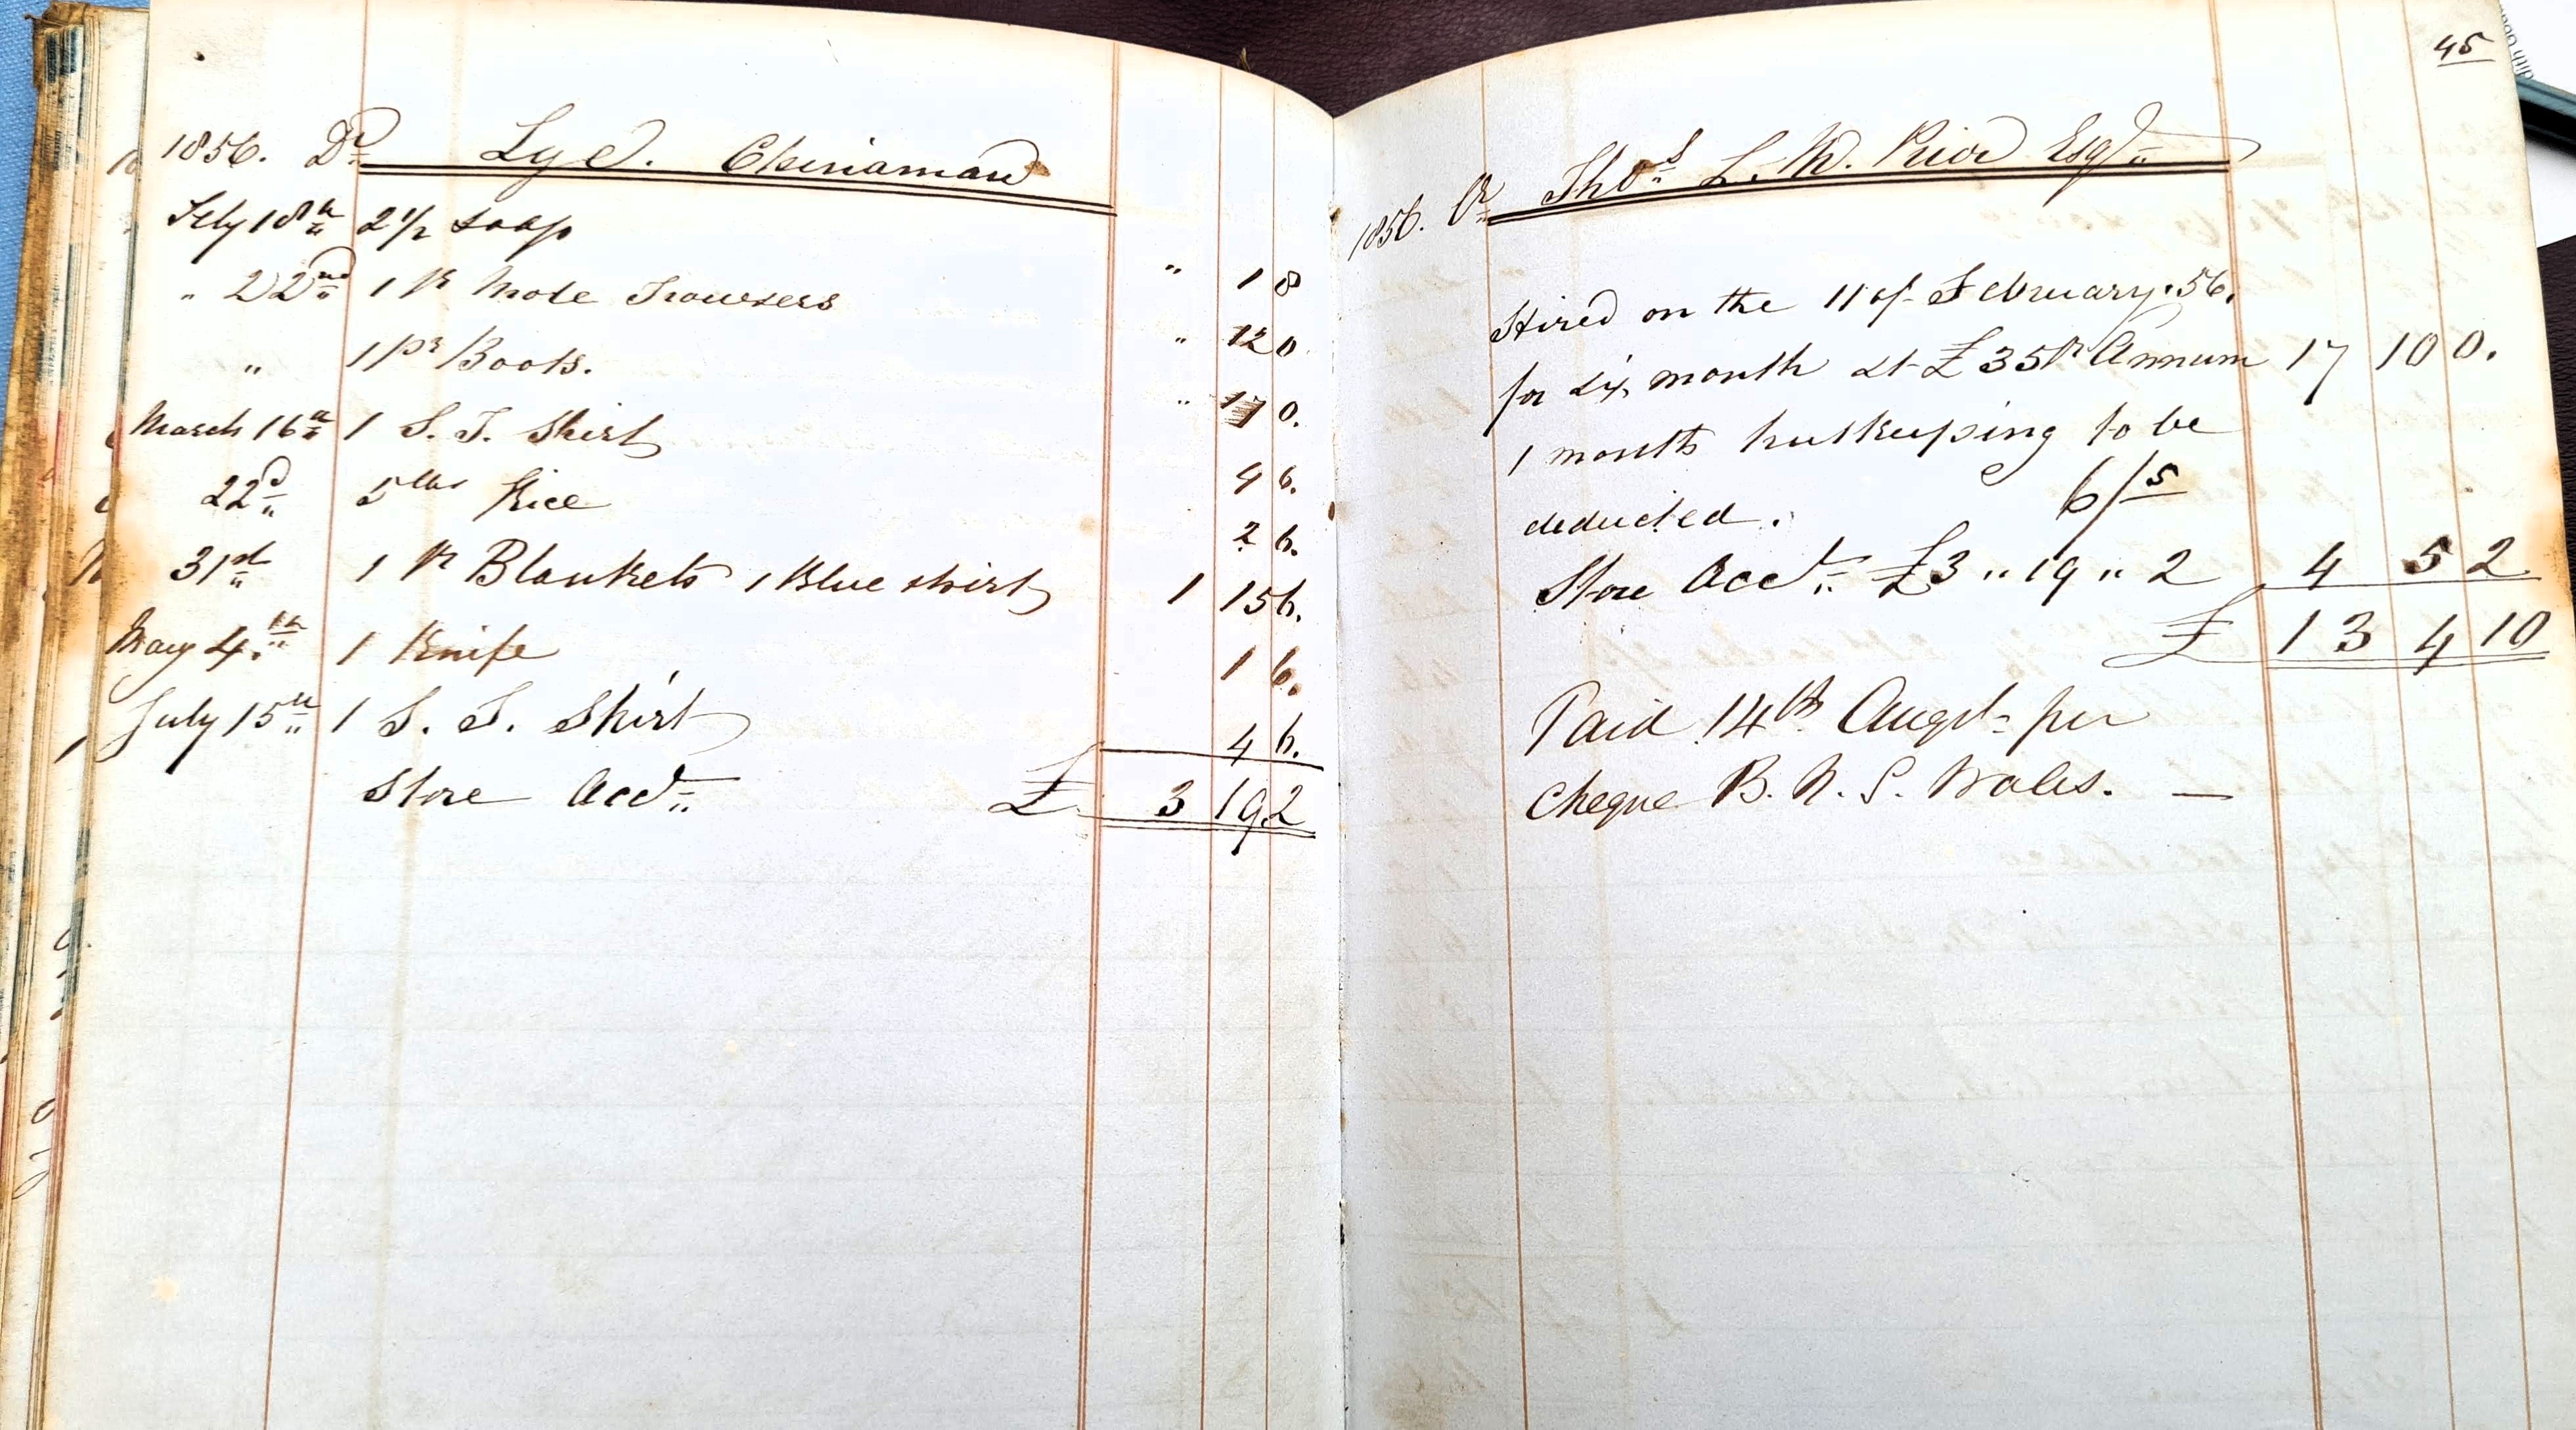 45
1856. Dr Lye. Chinaman
Feby 18th 2 1/2 Soap " 1 8
" 22nd 1 pr Mole Trousers " 12 0
" 1 pr Boots. " 17 0.
March 16th 1 S. T. Shirt 4 6.
22d 5 lbs Rice 2 6.
31st 1 pr Blankets 1 Blue shirt 1 15 6.
May 4th 1 Knife 1 6.
July 15th 1 S. T. Shirt 4 6.
Store Acct £ 3 19 2
1856. Cr Thos L. M. Prior Esqr
Hired on the 11 of February. 56.
for six month at £35 pr Annum 17 10 0.
1 month hutkeeping to be
deducted. 6/s
Store Acct £3 " 19 " 2 4 5 2
£ 13 4 10
Paid 14th Augst per
Cheque B. N. S. Wales. —